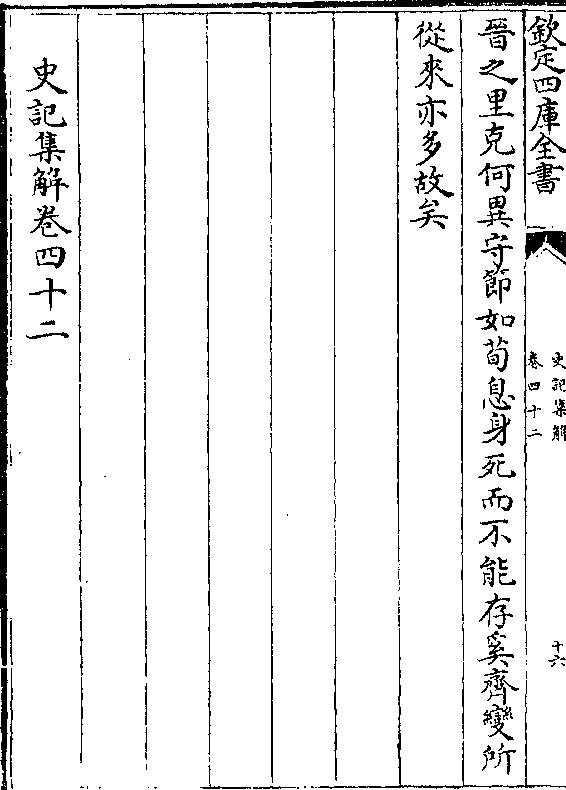 欽定四庫全書
史記集解
卷四十二
十六
晉之里克何異守節如荀息身死而不能存奚齊變所
從來亦多故矣
史記集解卷四十二